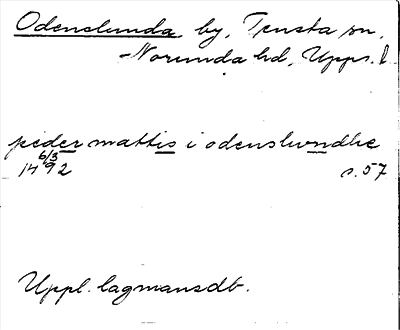 Odenslunda by, Tensta sn,
Norunda hd, Upps. l.
peder mattis i odenslwndhe
6/3
1492 s. 57
Uppl. lagmansdb.